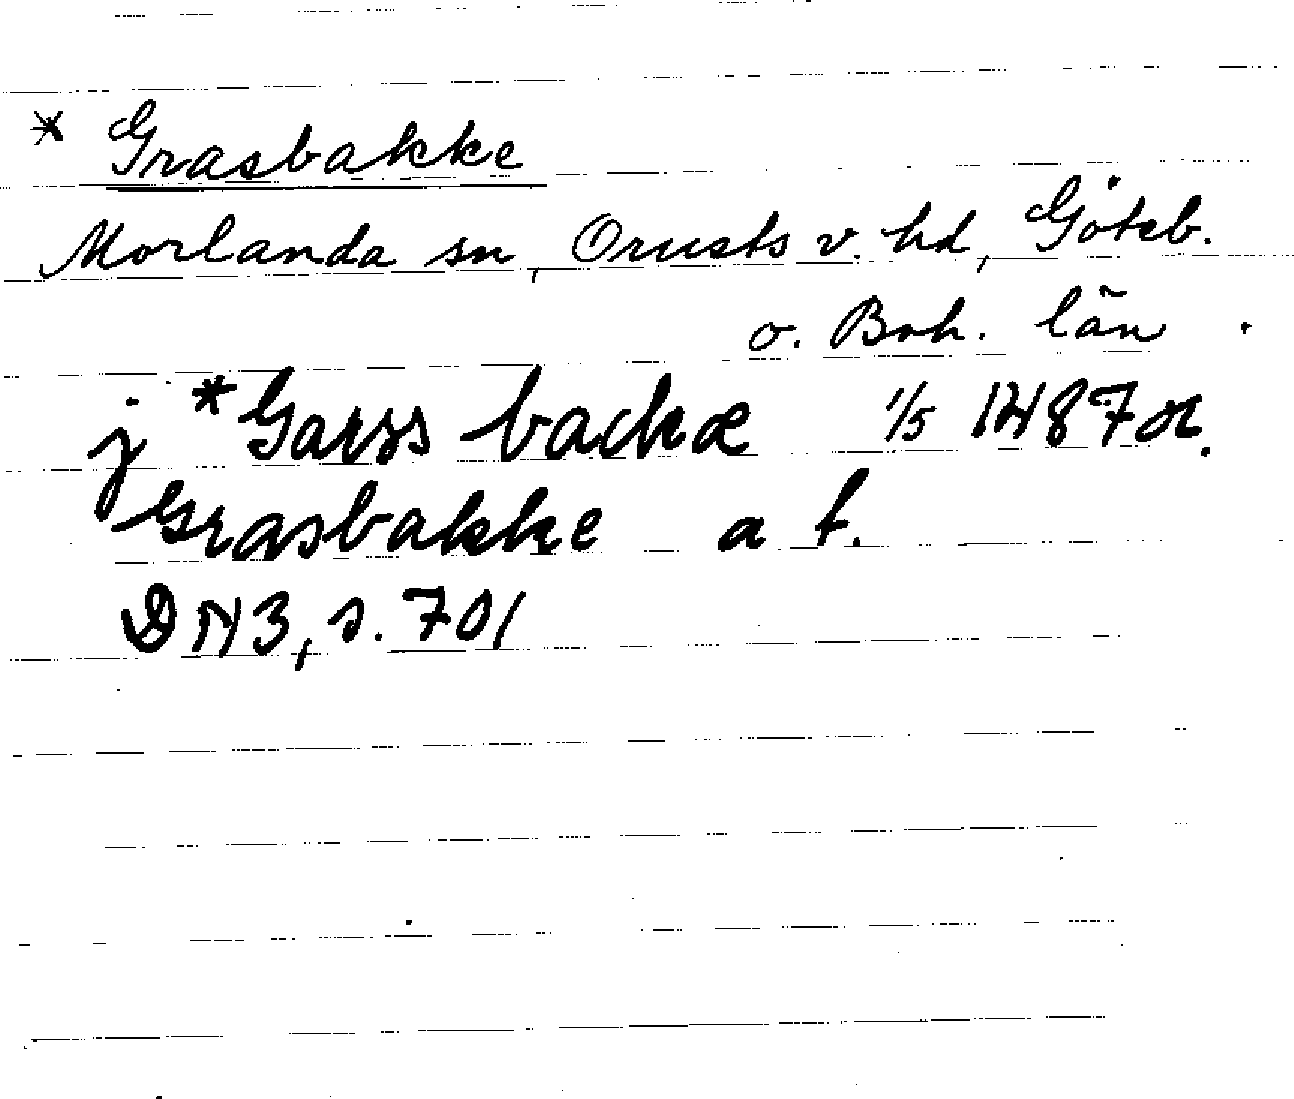 * Grasbakke
Morlanda sn, Orusts v. hd, Göteb.
o. Boh. län.
j *Garss backæ 1/5 1487 or.
Grasbakke a t.
DN 3, s. 701